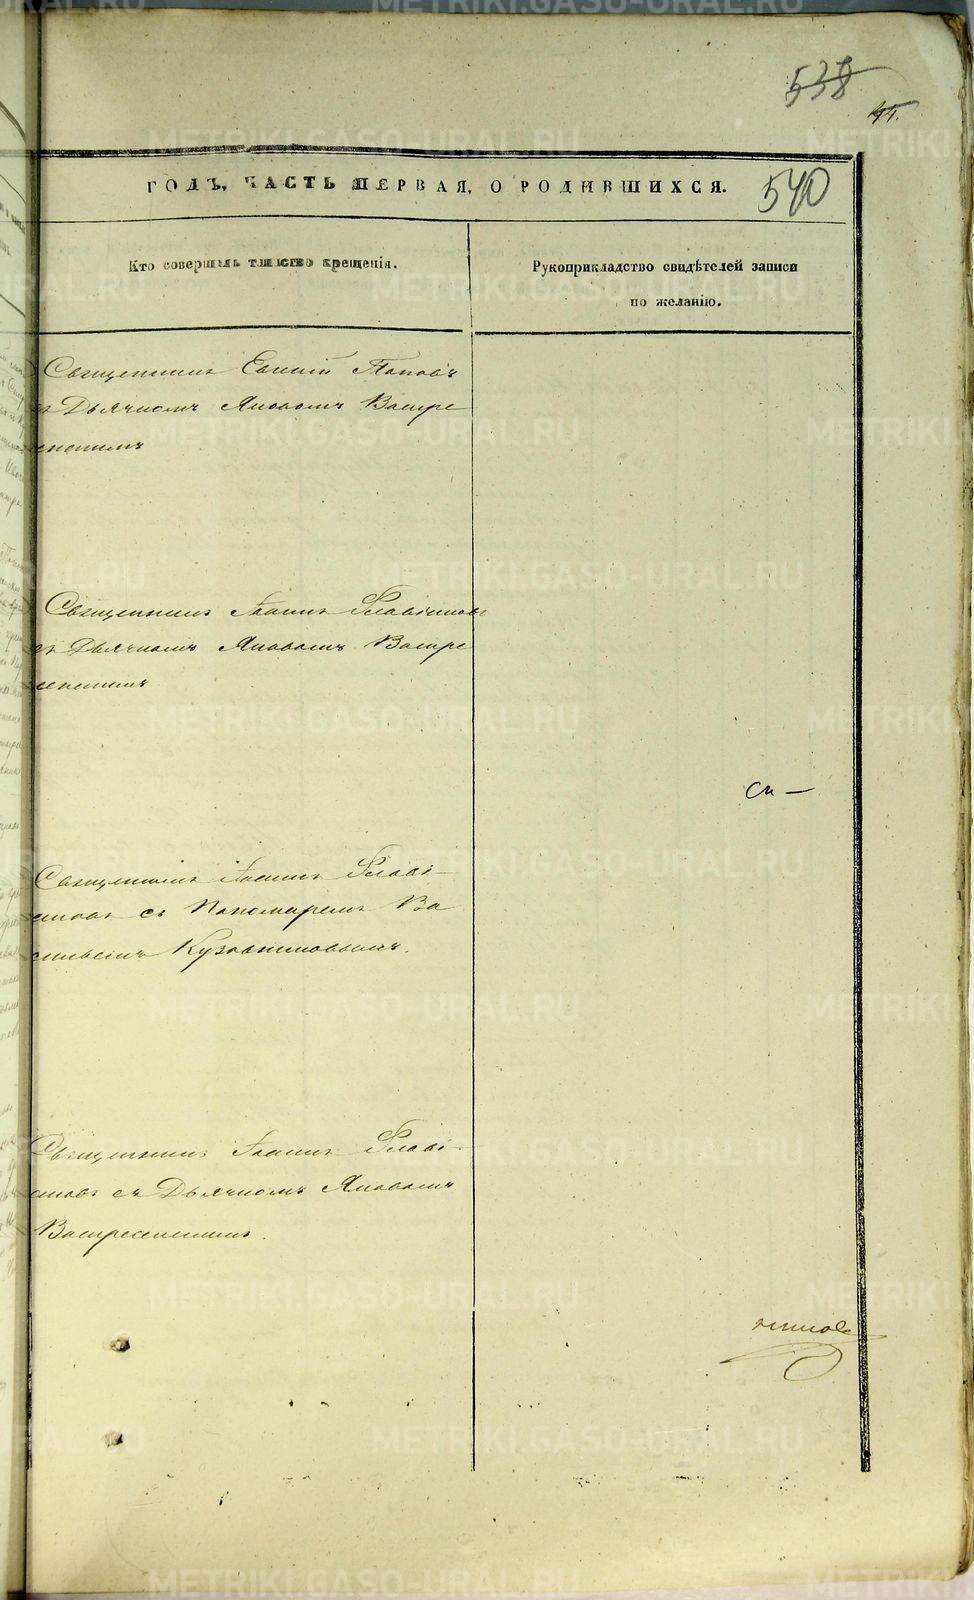 538
41.
ГОДЪ, ЧАСТЬ ПЕРВАЯ, О РОДИВШИХСЯ.
540
Кто совершалъ таинство крещенія.
Рукоприкладство свидѣтелей записи
по желанію.
Священникъ Евгеній Поповъ
съ Дьячкомъ Яковомъ Воскре
сенскимъ
Священникъ Іоаннъ Словцовъ
съ Дьячкомъ Яковомъ Воскре
сенскимъ
Си —
Священникъ Іоаннъ
съ Пономаремъ Ва
сильемъ Кузовниковымъ.
Священникъ Іоаннъ
съ Дьячкомъ Яковомъ
Воскресенскимъ.
METRIKI.GASO-URAL.RU